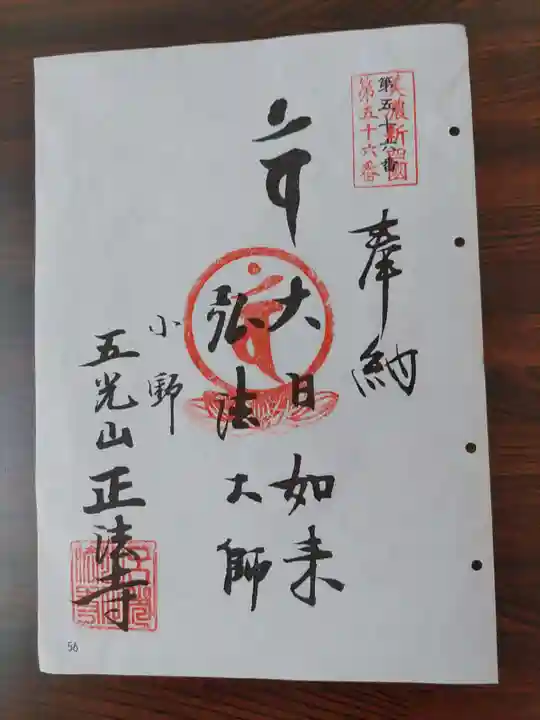 美濃新四国
第五十六番
第五十六番
奉納
大日如来
弘法大師
小野
五光山正法寺
56